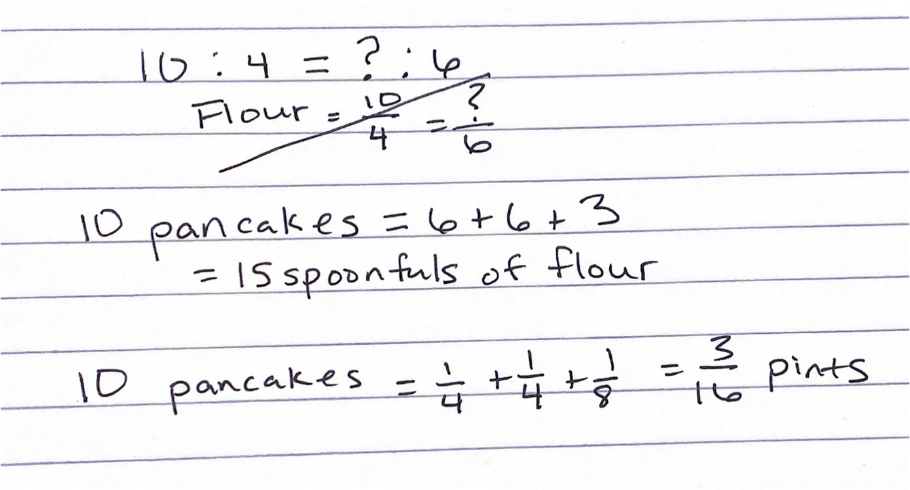 10 : 4 = ? : 6
Flour = 10/4 = ?/6
10 pancakes = 6 + 6 + 3
= 15 spoonfuls of flour
10 pancakes = 1/4 + 1/4 + 1/8 = 3/16 pints